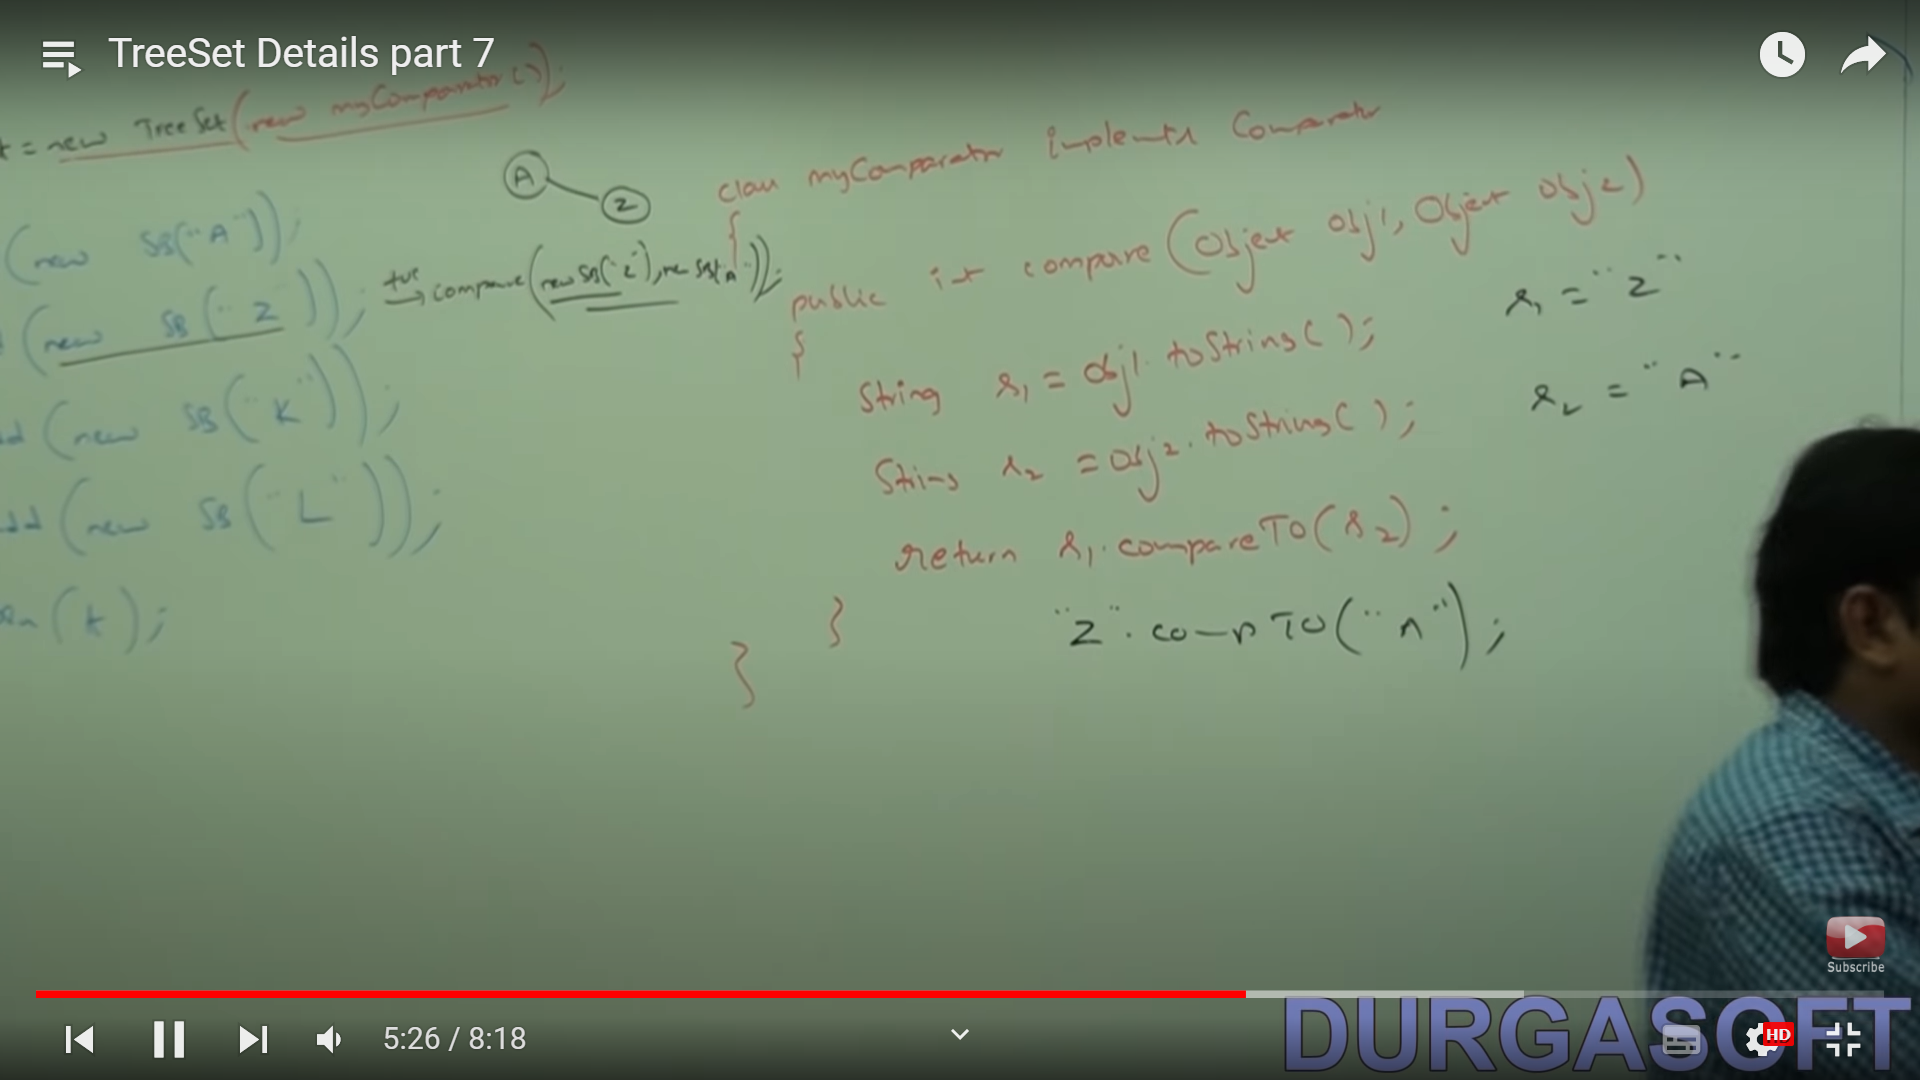 TreeSet Details part 7
t = new TreeSet(new myComparator());
(new SB("A"));
(new SB("Z"));
add (new SB("K"));
add (new SB("L"));
ln(t);
A
Z
+ve
→ compare(new SB("Z"), new SB("A"));
class myComparator implements Comparator
{
public int compare (Object obj1, Object obj2)
{
String s1 = obj1.toString();
String s2 = obj2.toString();
return s1.compareTo(s2);
}
}
s1 = "Z"
s2 = "A"
"Z".compTo("A");
Subscribe
DURGASOFT
5:26 / 8:18
HD